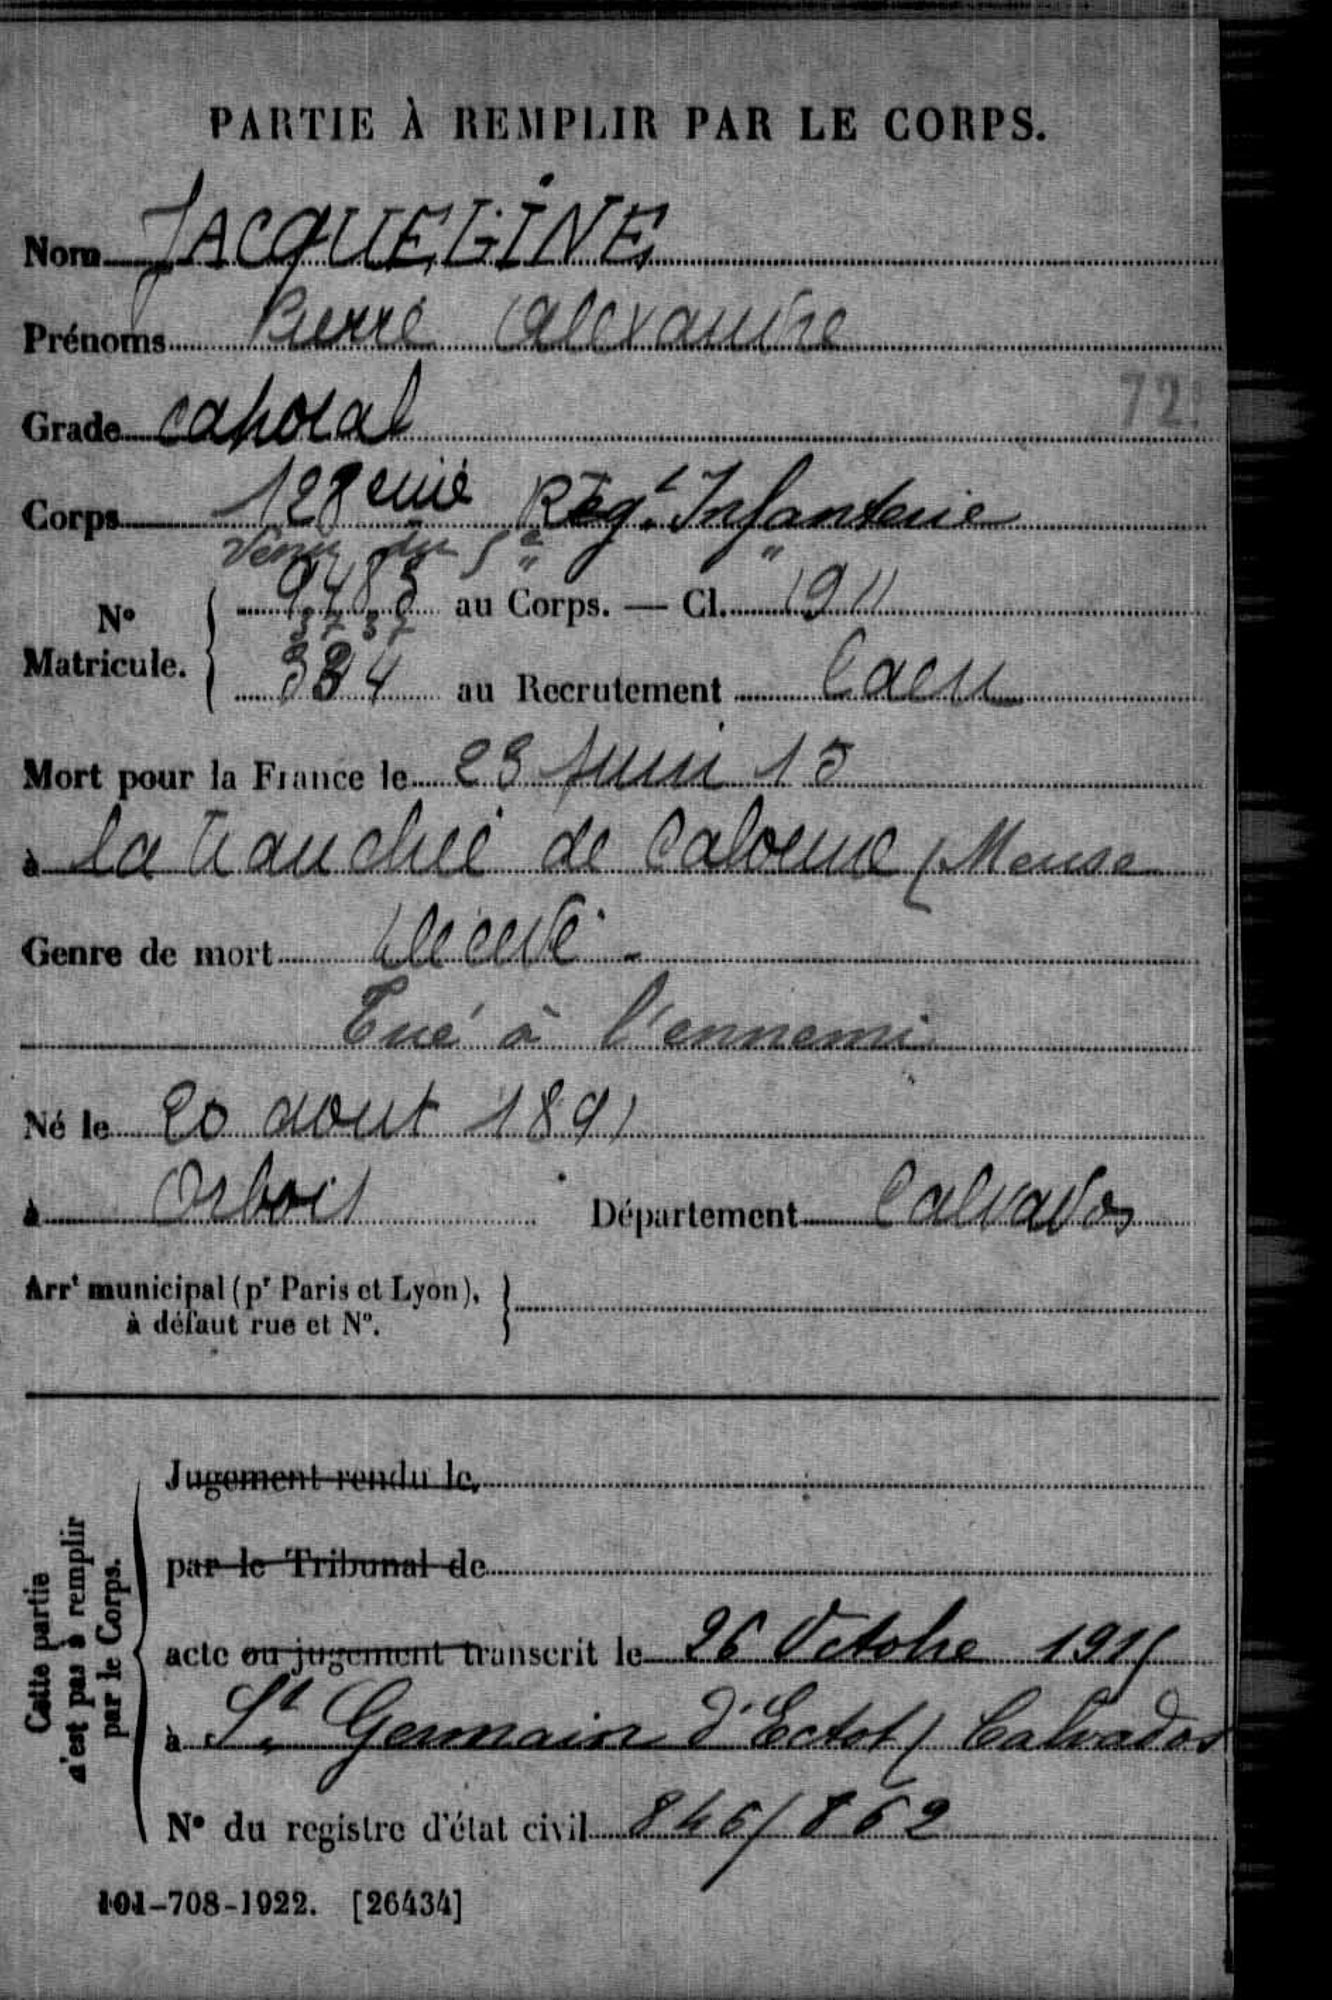 PARTIE À REMPLIR PAR LE CORPS.
Nom JACQUELINE
Prénoms Pierre Alexandre
Grade caporal
72
Corps 128eme Régt Infanterie
Venu du 5e
9483 au Corps. — Cl. 1911
3737
N° Matricule.
384 au Recrutement Caen
Mort pour la France le 23 Juin 15
à la tranchée de Calonne (Meuse
Genre de mort
Tué à l'ennemi
Né le 20 aout 1891
à Orbois Département Calvados
Arrt municipal (pr Paris et Lyon),
à défaut rue et N°.
Cette partie
n'est pas à remplir
par le Corps.
Jugement rendu le
par le Tribunal de
acte ou jugement transcrit le 26 Octobre 1915
à St Germain d'Ectot / Calvados
N° du registre d'état civil 846/862
101-708-1922. [26434]